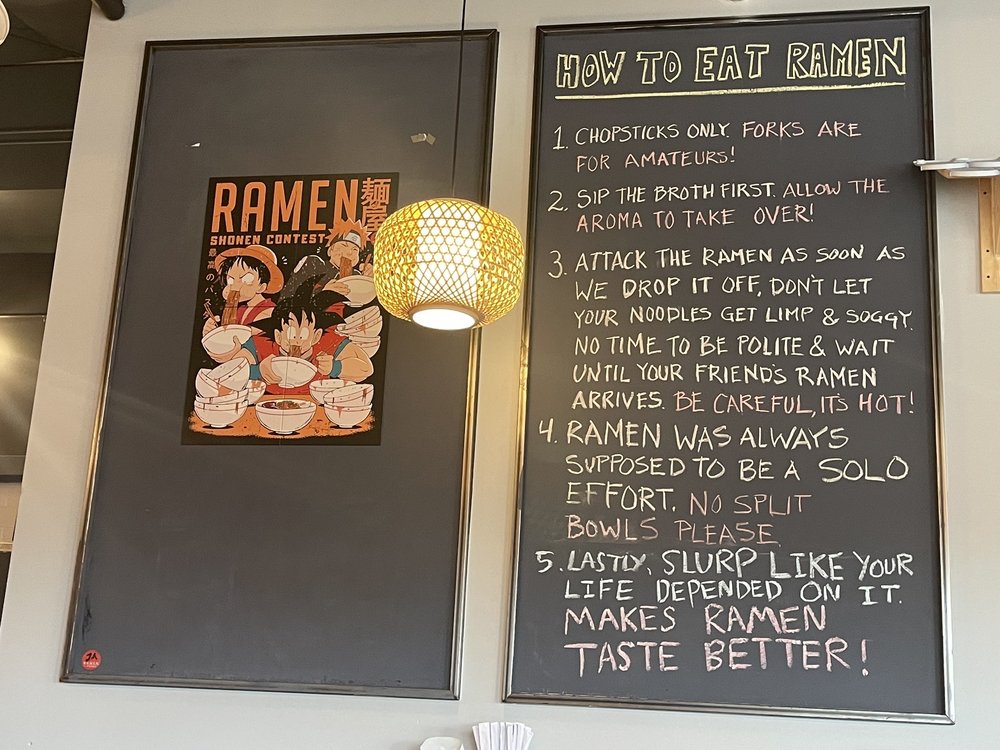 RAMEN
麺屋
SHONEN CONTEST
最高の
HOW TO EAT RAMEN
1. CHOPSTICKS ONLY. FORKS ARE
FOR AMATEURS!
2. SIP THE BROTH FIRST. ALLOW THE
AROMA TO TAKE OVER!
3. ATTACK THE RAMEN AS SOON AS
WE DROP IT OFF, DON'T LET
YOUR NOODLES GET LIMP & SOGGY.
NO TIME TO BE POLITE & WAIT
UNTIL YOUR FRIEND'S RAMEN
ARRIVES. BE CAREFUL, IT'S HOT!
4. RAMEN WAS ALWAYS
SUPPOSED TO BE A SOLO
EFFORT. NO SPLIT
BOWLS PLEASE
5. LASTLY, SLURP LIKE YOUR
LIFE DEPENDED ON IT.
MAKES RAMEN
TASTE BETTER!